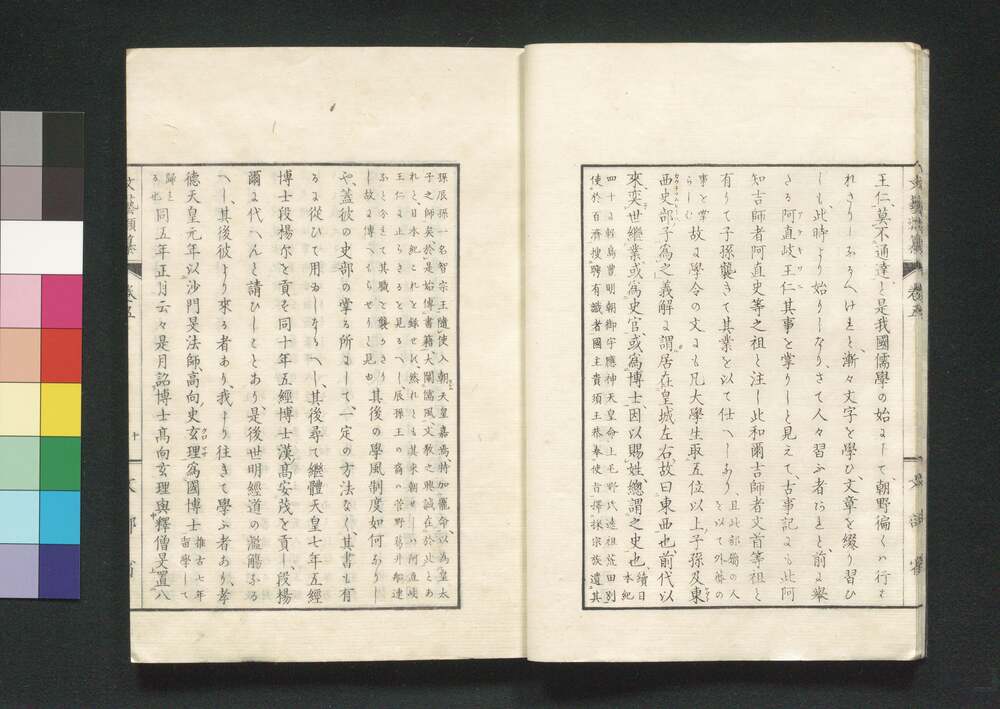 王仁、莫不通達と是我國儒學の始にして、朝野徧くハ行ハ
れさりしなるへけれと、漸々文字を學ひ、文章を綴り習ひ
しも、此時より始りしなり、さて人々習ふ者なれと、前に擧
さる阿直岐王仁其事を掌りしと見えて、古事記にも此阿
知吉師者阿直史等之祖と注し此和爾吉師者文首等祖と
有りて子孫襲きて其業を以て仕へしあり、且此部類の人を以て外蕃の
事を掌らしむ故に學令の文にも凡大學生取五位以上子孫及東
西史部子爲之義解に謂居在皇城左右故曰東西也前代以
來奕世繼業或爲史官、或爲博士因以賜姓、總謂之史也、續日本紀
四十に輕島豐明朝御宇應神天皇命上毛野氏遠祖荒田別
使於百濟搜聘有識者國主貴須王恭奉使旨擇採宗族遣其
孫辰孫一名智宗王隨使入朝天皇嘉焉特加寵命以為皇太
子之師矣於是始傳書籍大闡儒風文教之興誠在於此とあ
れと、日本紀これを録せす、然れとも其來朝せしハ阿直岐
王仁に止らさると見るへし、辰孫王の裔の菅野葛井船連
ふと今きて其職を襲かさり
し故に傳へもらせりと見ゆ其後の學風制度如何ありし
や、蓋彼の史部の掌る所にして、一定の方法なく、其書も有
るに從ひて用ゐしならへし、其後尋て繼體天皇七年五經
博士段楊尓を貢そ同十年五經博士漢高安茂を貢し、段楊
爾に代へんと請ひしことあり是後世明經道の濫觴なる
へし、其後彼より來る者あり、我より往きて學ふ者あり、孝
德天皇元年以沙門旻法師、高向史玄理爲國博士推古七年留學して
歸るとも也同五年正月云々是月詔博士高向玄理與釋僧旻置八
文藝類纂
卷五
十
文部省